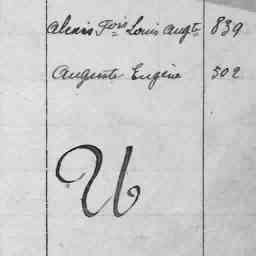 Alexis Fois Louis Augte 839
Auguste Eugène 502
U